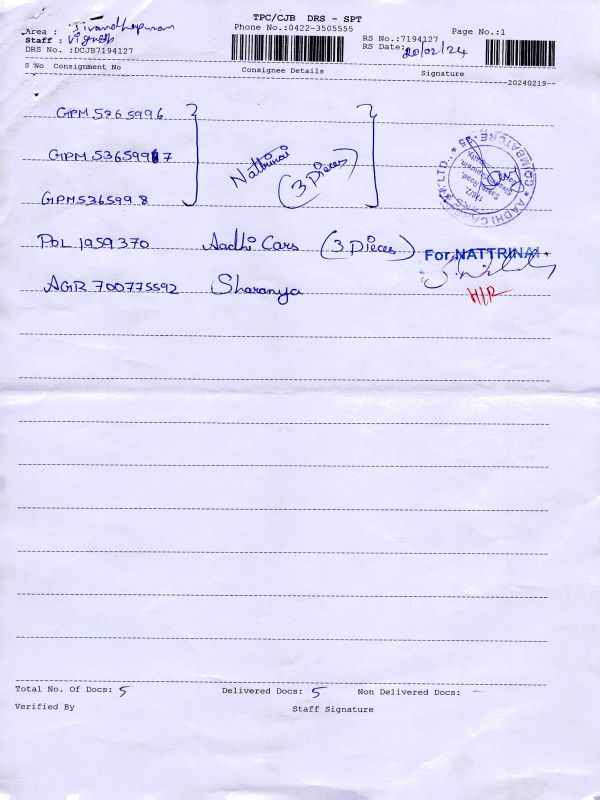 TPC/CJB DRS - SPT
Phone No.:0422-3505555
Page No.:1
Area :
Staff : Vignesh
DRS No. :DCJB7194127
RS No.:7194127
RS Date: 20/02/24
S No Consignment No Consignee Details Signature
20240219
GPM 5365996
GPM 5365997
GPM 536599 8
Nattrinai
(3 Pieces)
POL 1959370 Aadhi Cars (3 Pieces)
For NATTRINAI
AGR 700775592 Sharanya
Total No. Of Docs: 5 Delivered Docs: 5 Non Delivered Docs: -
Verified By Staff Signature